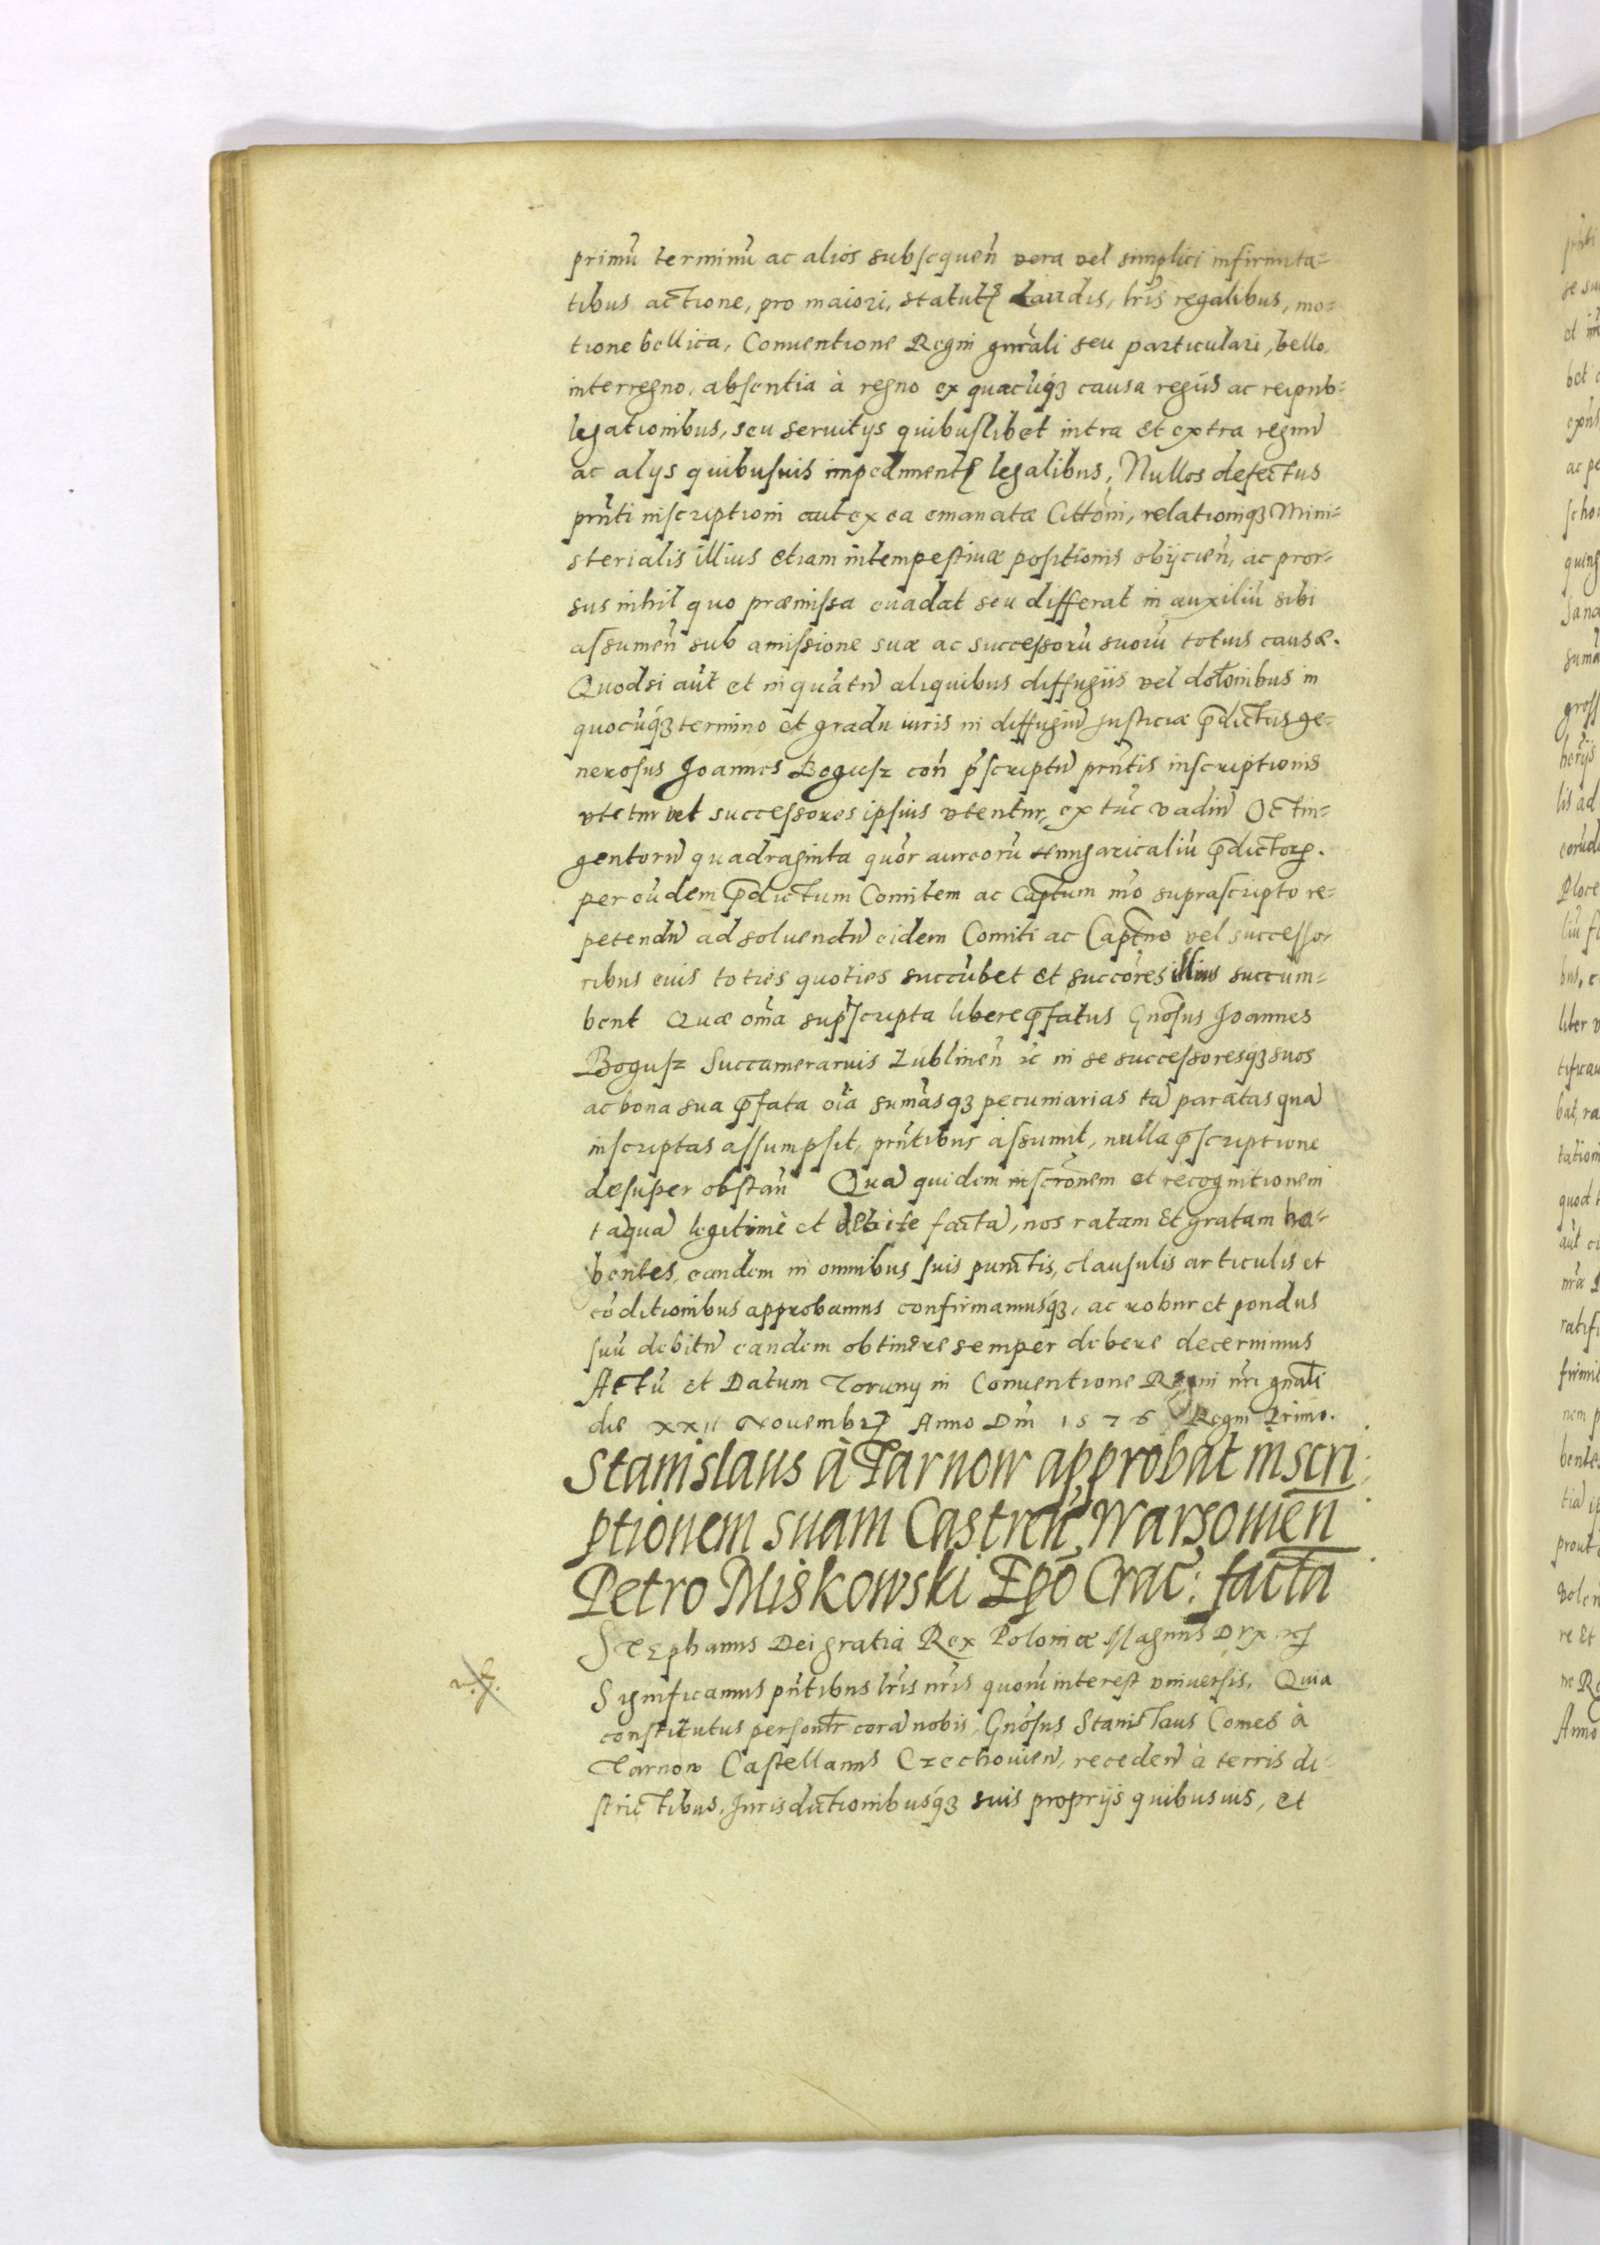 primũ terminũ ac alios subsequeñ vera vel simplici infirmita-
tibus actione, pro maiori, statut; Laudis, lr̃is regalibus, mo-
tione bellica, Conuentione Regni gnr̃ali seu particulari, bello,
interregno, absentia à regno ex quacũq; causa regijs ac reipub-
legationibus, seu seruitijs quibuslibet intra et extra regnũ
ac alijs quibusuis impedimentʒ legalibus, Nullos defectus
prñti inscriptioni aut ex ea emanatæ Cittõni, relationiq; Mini-
sterialis illius etiam intempestiuæ positionis obijcieñ, ac pror-
sus nihil quo præmissa euadat seu differat in auxiliũ sibi
assumeñ sub amissione suæ ac successorũ suorũ totius causæ.
Quodsi aũt et inquãtũ aliquibus diffugiis vel dol̃onibus in
quocũq; termino et gradu iuris in diffugiũ Justiciæ p̃dictus ge-
nerosus Joannes Bogusz coñ p̃scriptũ prñtis inscriptionis
vtetur vel successores ipsius vtentur, ex tũc vadiũ Octin-
gentorũ quadraginta quõr aureorũ Hungaricaliũ p̃dictorʒ.
per eũdem p̃dictum Comitem ac Captum mõ suprascripto re-
petendũ ad soluendũ eidem Comiti ac Captñeo vel successo-
ribus eius toties quoties succũbet et succõres illius succum-
bent Quæ om̃a sup̃scripta libere p̃fatus Gnõsus Joannes
Bogusz Succamerarius Lublineñ ꝛc in se successoresq; suos
ac bona sua p̃fata oĩa sumãsq; pecuniarias tã paratas quã
inscriptas assumpsit, prñtibus assumit, nulla p̃scriptione
desuper obstañ Quã quidem inscrõnem et recognitionem
tãquã legitimè et debite factã, nos ratam et gratam ha-
bentes, eandem in omnibus suis punctis, clausulis articulis et
cõditionibus approbamus confirmamusq;, ac robur et pondus
suũ debitũ eandem obtinere semper debere decernimus
Actũ et Datum Toruny in Conuentione Regni nr̃i gñali
die XXII Nouembrʒ Anno Dñi 1576 Regni Primo.
Stanislaus à Tarnow approbat inscri-
ptionem suam Castreñ, Warsouieñ
Petro Miskowski Epõ Crac: facta
Stephanus Dei gratia Rex Poloniæ Magnus Dux ꝛc
Significamus pñtibus lr̃is nr̃is quorũ interest vniuersis. Quia
constitutus personlr̃ corã nobis Gnõsus Stanislaus Comes à
Tarnow Castellanus Czechouieñ, recedeñ à terris di-
strictibus, Jurisdictionibusq; suis proprijs quibusuis, et